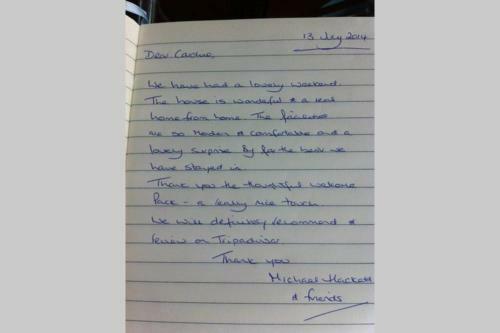 13 July 2014
Dear Caroline,
We have had a lovely weekend.
The house is wonderful & a real
home from home. The facilities
are so modern & comfortable and a
lovely surprise. By far the best we
have stayed in.
Thank you the thoughtful welcome
Pack - a really nice touch.
We will definitely recommend &
review on Tripadvisor.
Thank you
Michael Hackett
& friends